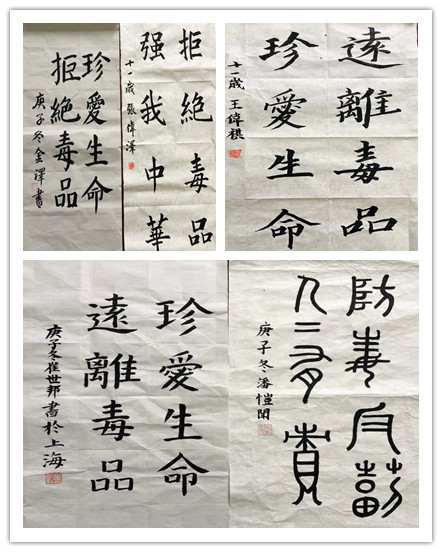 珍愛生命
拒絶毒品
庚子冬金澤書
拒絶毒品
强我中華
十一歲 張偉澤
遠離毒品
珍愛生命
十一歲 王偉祺
珍愛生命
遠離毒品
庚子冬崔世邦書於上海
防毒反
人二有責
庚子冬潘愷